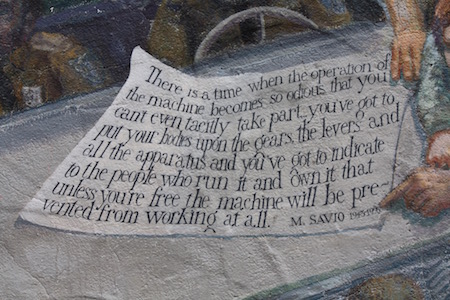 There is a time when the operation of
the machine becomes so odious that you
can't even tacitly take part, you've got to
put your bodies upon the gears, the levers and
all the apparatus and you've got to indicate
to the people who run it and own it that
unless you're free the machine will be pre-
vented from working at all. M. SAVIO